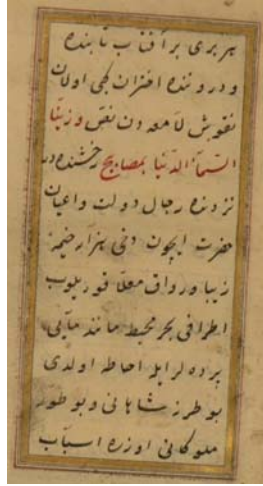 هر بری بر آفتاب تابنده
و درونده اختران کبی اولان
نقوش لامعه دن نقص و زینا
السماء الدنیا بمصابیح رخشنده در
نزدنده رجال دولت و اعیان
حضرت ایچون دخی هزار خیمۀ
زیبا و رواق معلا قوریلوب
اطرافی بحر محیط مانند مآیی
پرده لر ایله احاطه اولندی
بو طرز شاهانی و بو طور
ملوکانی اوزره اسباب